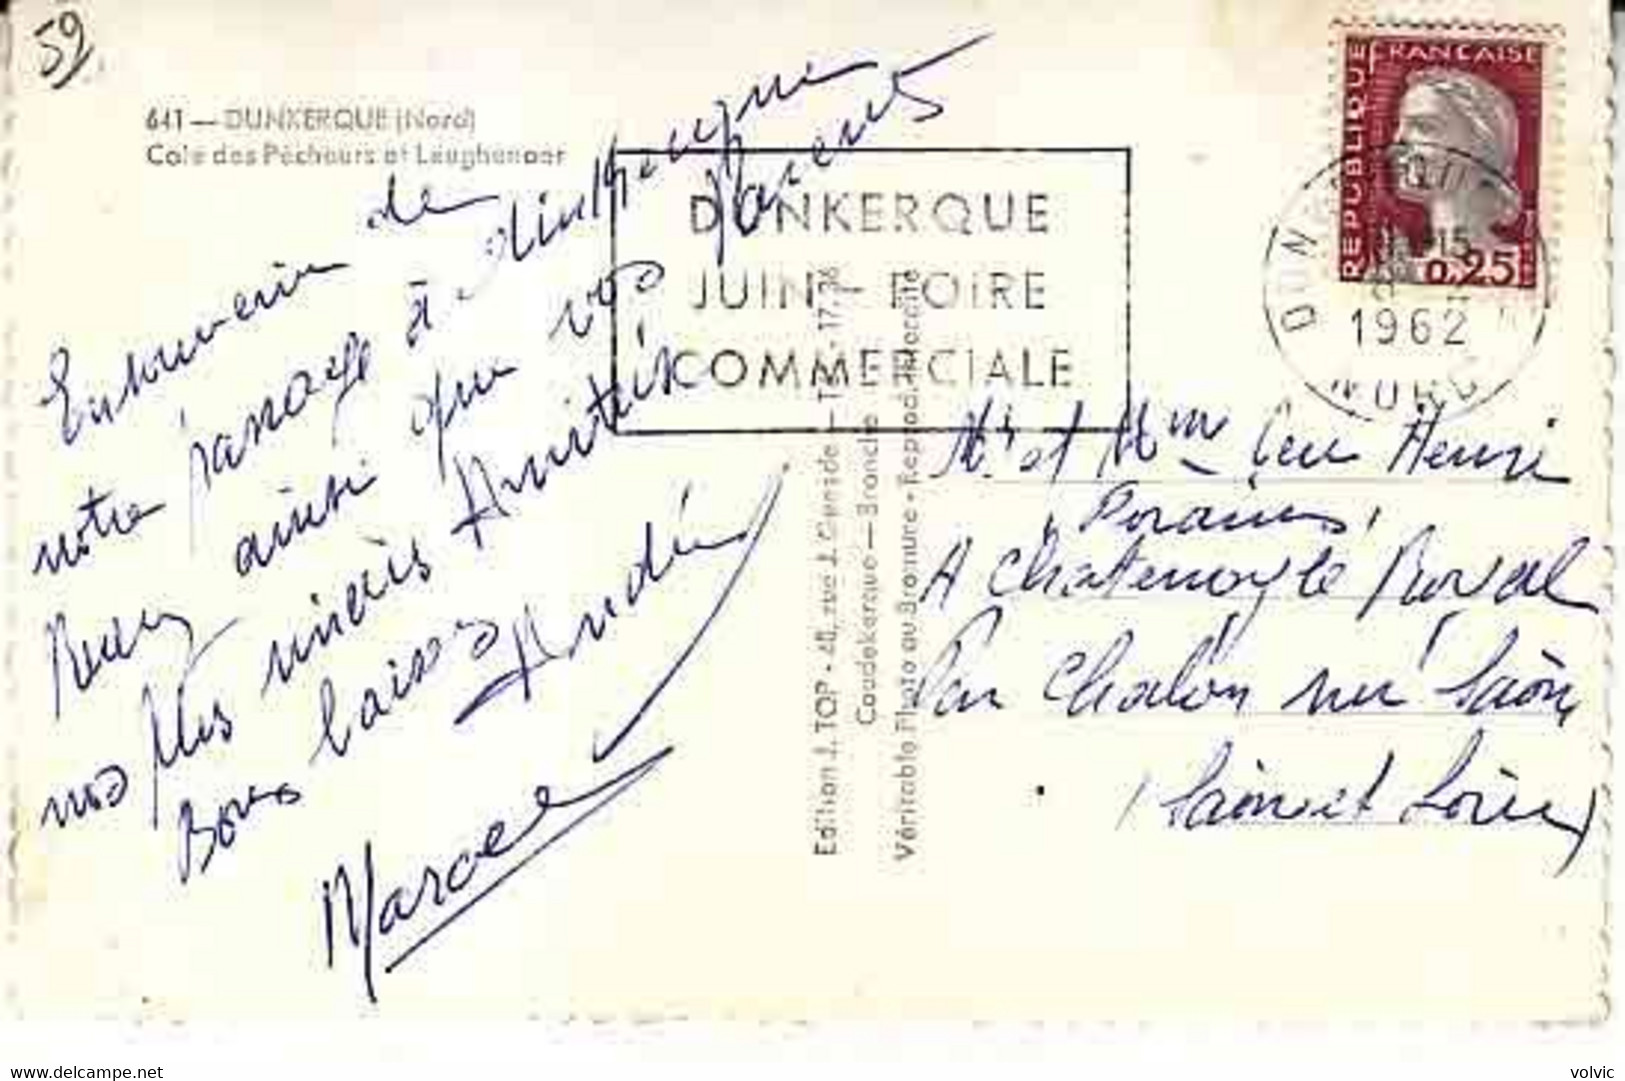 59.
641 — DUNKERQUE (Nord)
Cale des Pêcheurs et Leughenaer
En souvenir de
notre passage à dinkerque
ainsi que vos parents
Recevez
nos plus sincères Amitiés
Bons baisers Andrée
Marcel
DUNKERQUE
JUIN - FOIRE
COMMERCIALE
REPUBLIQUE FRANÇAISE
0,25
1962
NORD
Edition J. TOP - 40, rue J. - Tél. - 17.
Coudekerque — Branche
Véritable Photo au Bromure - Reprod. interdite
Mr et Mm Henri
A Chatenoy le Royal
Par Chalon sur Saône
(Saône et Loire)
www.delcampe.net
volvic